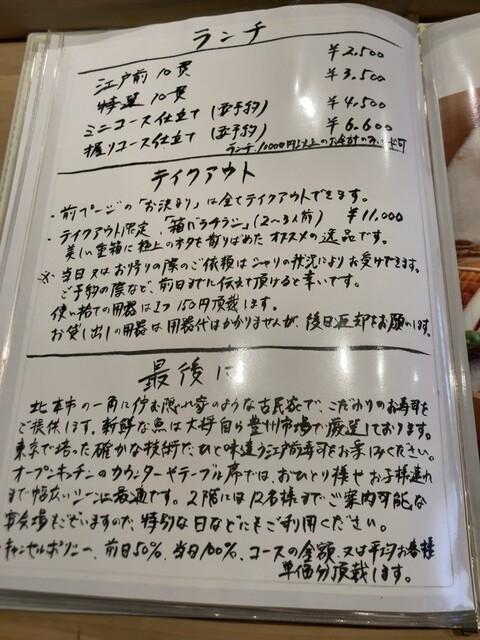 ランチ
江戸前 10貫 ¥2,500
特選 10貫 ¥3,500
ミニコース仕立て (要予約) ¥4,500
握りコース仕立て (要予約) ¥6,600
ランチ、10000円以上のお会計のみカード可
テイクアウト
・前ページの「お決まり」は全てテイクアウトできます。
・テイクアウト限定、「箱バラチラシ」(2〜3人前) ¥11,000
美しい重箱に極上のネタを散りばめたオススメの逸品です。
※当日又はお帰りの際のご依頼はシャリの状況によりお受けできます。
ご予約の際など、前日までに伝えて頂けると幸いです。
使い捨ての用器は1つ150円頂戴します。
お貸し出しの用器は用器代はかかりませんが、後日返却をお願いします。
最後に
北本市の一角に佇む隠れ家のような古民家で、こだわりのお寿司を
ご提供します。新鮮な魚は大将自ら豊州市場で厳選しております。
東京で培った確かな技術で、ひと味違う江戸前寿司をお楽しみください。
オープンキッチンのカウンターやテーブル席では、おひとり様やお子様連れ
まで幅広いシーンに最適です。2階には12名様までご案内可能な
宴会場もございますので、特別な日などにもご利用ください。
・キャンセルポリシー、前日50%、当日100%、コースの金額、又は平均お客様
単価分頂戴します。